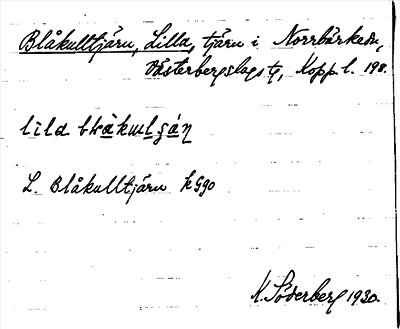 Blåkulltjärn, Lilla, tjärn i Norrbärke sn,
Västerbergslags tg, Kopp. l. 198.
lild blåkulgán
L. Blåkulltjärn k Ggo
K. Söderberg 1930.